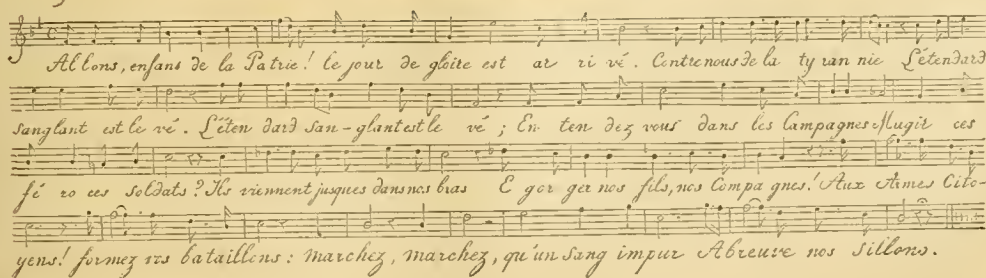 Allons, enfans de la Patrie! le jour de gloire est ar ri vé. Contre nous de la ty ran nie L'étendard
sanglant est le vé. L'éten dard San-glant est le vé; En ten dez vous dans les Campagnes Mugir ces
fé ro ces soldats? Ils viennent jusques dans nos bras E gor ger nos fils, nos Compa gnes! Aux Armes Cito-
yens! formez vos bataillons: marchez, marchez, qu'un Sang impur Abreuve nos Sillons.